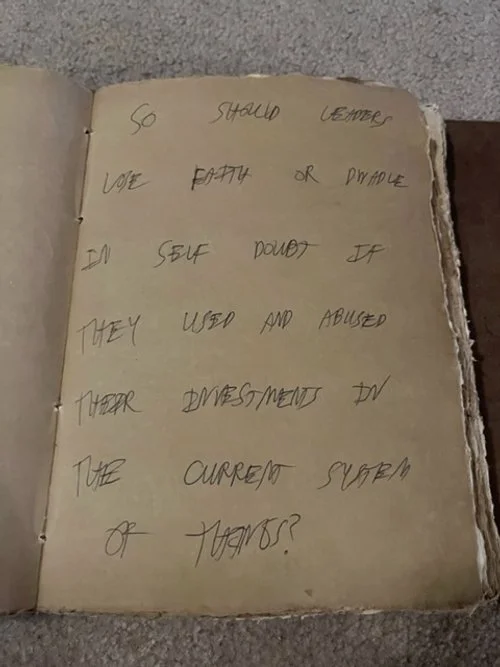 SO SHOULD LEADERS
LOSE FAITH OR DWADLE
IN SELF DOUBT IF
THEY USED AND ABUSED
THEIR INVESTMENTS IN
THE CURRENT SYSTEM
OF THINGS?